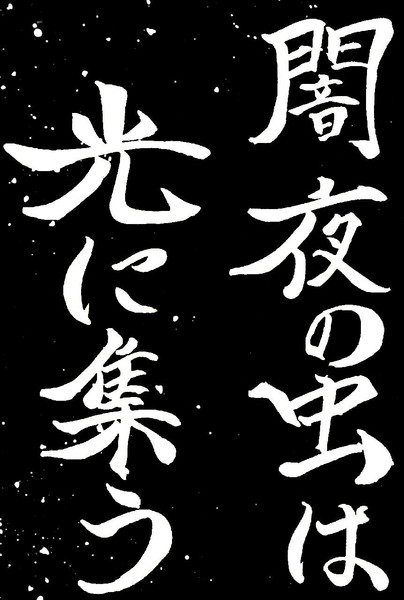 闇夜の虫は
光に集う